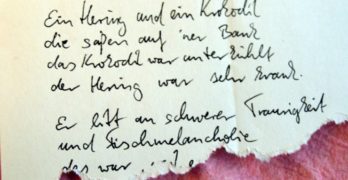 Ein Hering und ein Krokodil
die saßen auf 'ner Bank
das Krokodil war unterkühlt
der Hering war sehr krank.
Er litt an schwerer Traurigkeit
und Fischmelancholie
das war